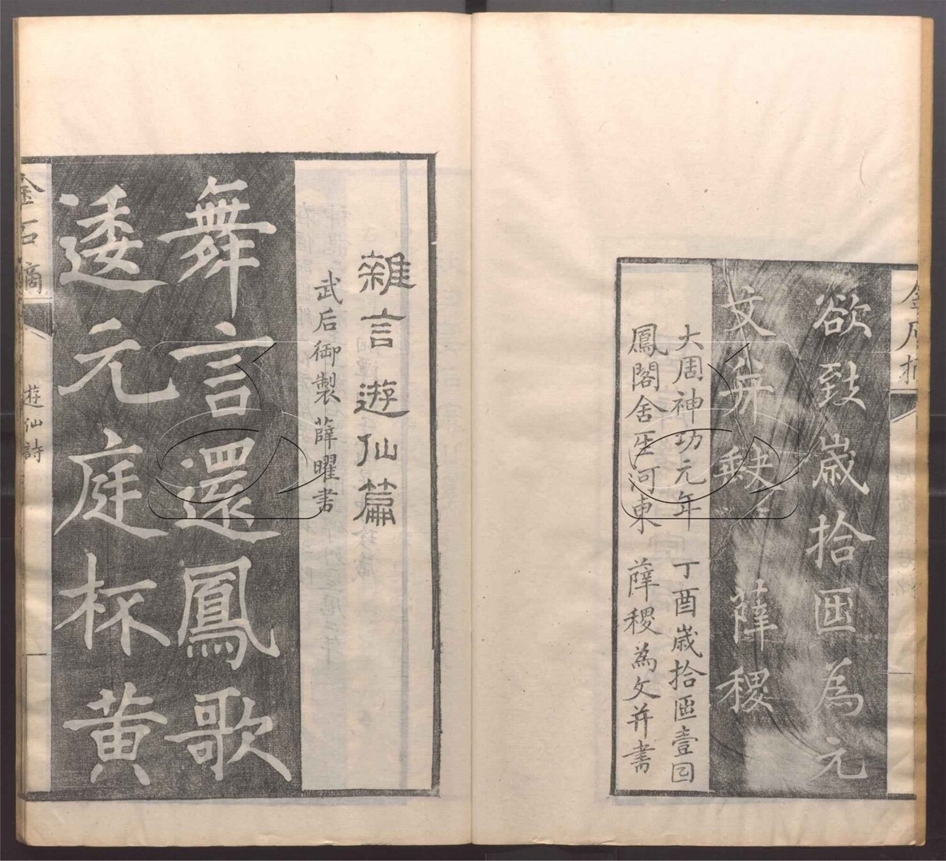 欲致歲拾𠥱為元
文并 薛稷
大周神功元年 丁酉歲拾𠥱壹𡆠
鳳閣舍𤯔河東 薛稷為文并書
雜言遊仙篇
武后御製 薛曜書
舞言還鳳歌
逶元庭杯黃
金石摘 遊仙詩